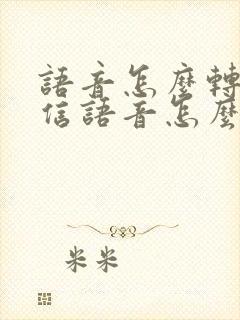 語音怎麼轉
信語音怎麼
米米